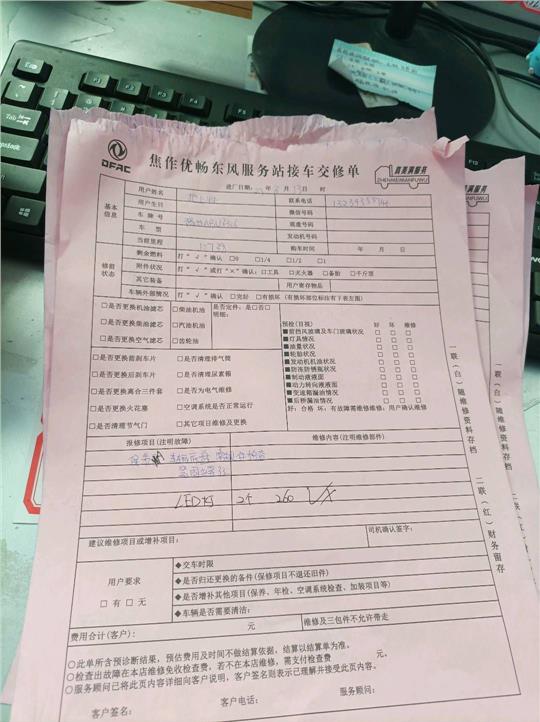 DFAC
焦作优畅东风服务站接车交修单
真美满服务
ZHENMEIMANFUWU
基本信息
用户姓名 进厂日期: 年 月 日 时
用户生日 联系电话
车牌号 微信号码
车型 底盘号码
发动机号
当前里程 购车时间 年 月 日
修前状态
剩余燃油 打“√”确认 □0 □1/4 □1/2 □1
附件状况 打“√”或打“×”确认: □工具 □灭火器 □备胎 □千斤顶
其它装备 用户寄存物品
车辆外部情况 打“√”确认 □完好 □有损坏(有损坏部位标注有下表左图)
□是否更换机油滤芯 □柴油机油 是否定件: 是□否□
□是否更换柴油滤芯 □汽油机油 明细:
□是否更换空气滤芯 □齿轮油
□是否更换前刹车片 □是否清理排气筒
□是否更换后刹车片 □是否清理尿素箱
□是否更换离合三件套 □是否为电气维修
□是否更换火花塞 □空调系统是否正常运行
□是否清理节气门 □其它项目维修及更换
预检(目视) 好 坏 维修
■前挡风玻璃及车门玻璃状况 □ □ □
■灯具情况 □ □ □
■油量状况 □ □ □
■轮胎状况 □ □ □
■发动机机油状况 □ □ □
■防冻防锈瓶状况 □ □ □
■制动液液面 □ □ □
■动力转向液液面 □ □ □
■变速箱漏油情况 □ □ □
■后桥漏油情况 □ □ □
好: 合格 坏: 有故障需维修维修: 用户确认维修
报修项目(注明故障) 维修内容(注明维修部件)
LED灯 2个 260
建议维修项目或增补项目: 司机确认签字:
用户要求
□有 □无
◆交车时限
◆是否归还更换的备件(保修项目不退还旧件)
◆是否增补其他项目(保养、年检、空调系统检查、加装项目等)
◆车辆是否需要清洁:
费用合计(客户): 元 维修及三包件不允许带走
○此单所含预诊断结果,预估费用及时间不做结算依据,结算以结算单为准。
○检查出故障在本店维修免收检查费,若不在本店维修,需支付检查费 元。
○服务顾问已将此页内容详细向客户说明,客户签名则表示已理解并接受此页内容。
客户签名: 客户电话: 服务顾问:
一联(白)随维修资料存档
二联(红)财务留存